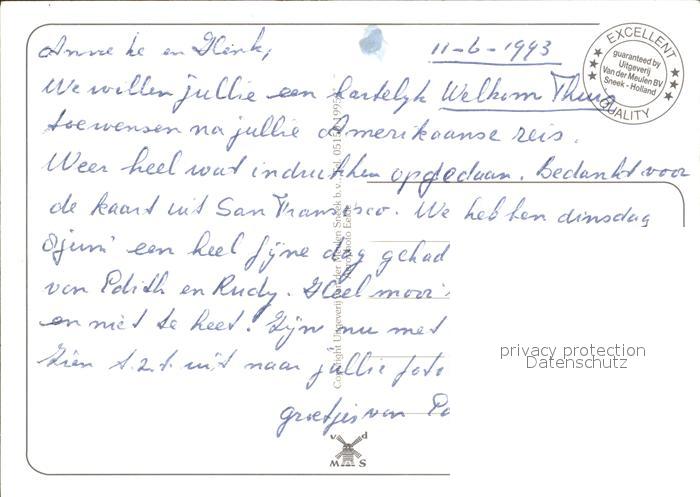 Anneke en Henk,
11-6-1993
We willen jullie een hartelijk Welkom Thuis
toewensen na jullie Amerikaanse reis.
Weer heel wat indrukken opgedaan. Bedankt voor
de kaart uit San Francisco. We hebben dinsdag
8 juni een heel fijne dag gehad
van Edith en Rudy. Heel mooi
en niet te heet! Zijn nu met
Zien t.z.t. uit naar jullie foto
groetjes van
EXCELLENT QUALITY
guaranteed by
Uitgeverij
Van der Meulen BV
Sneek - Holland
Copyright Uitgeverij Van der Meulen Sneek b.v.
privacy protection
Datenschutz
v d
M S